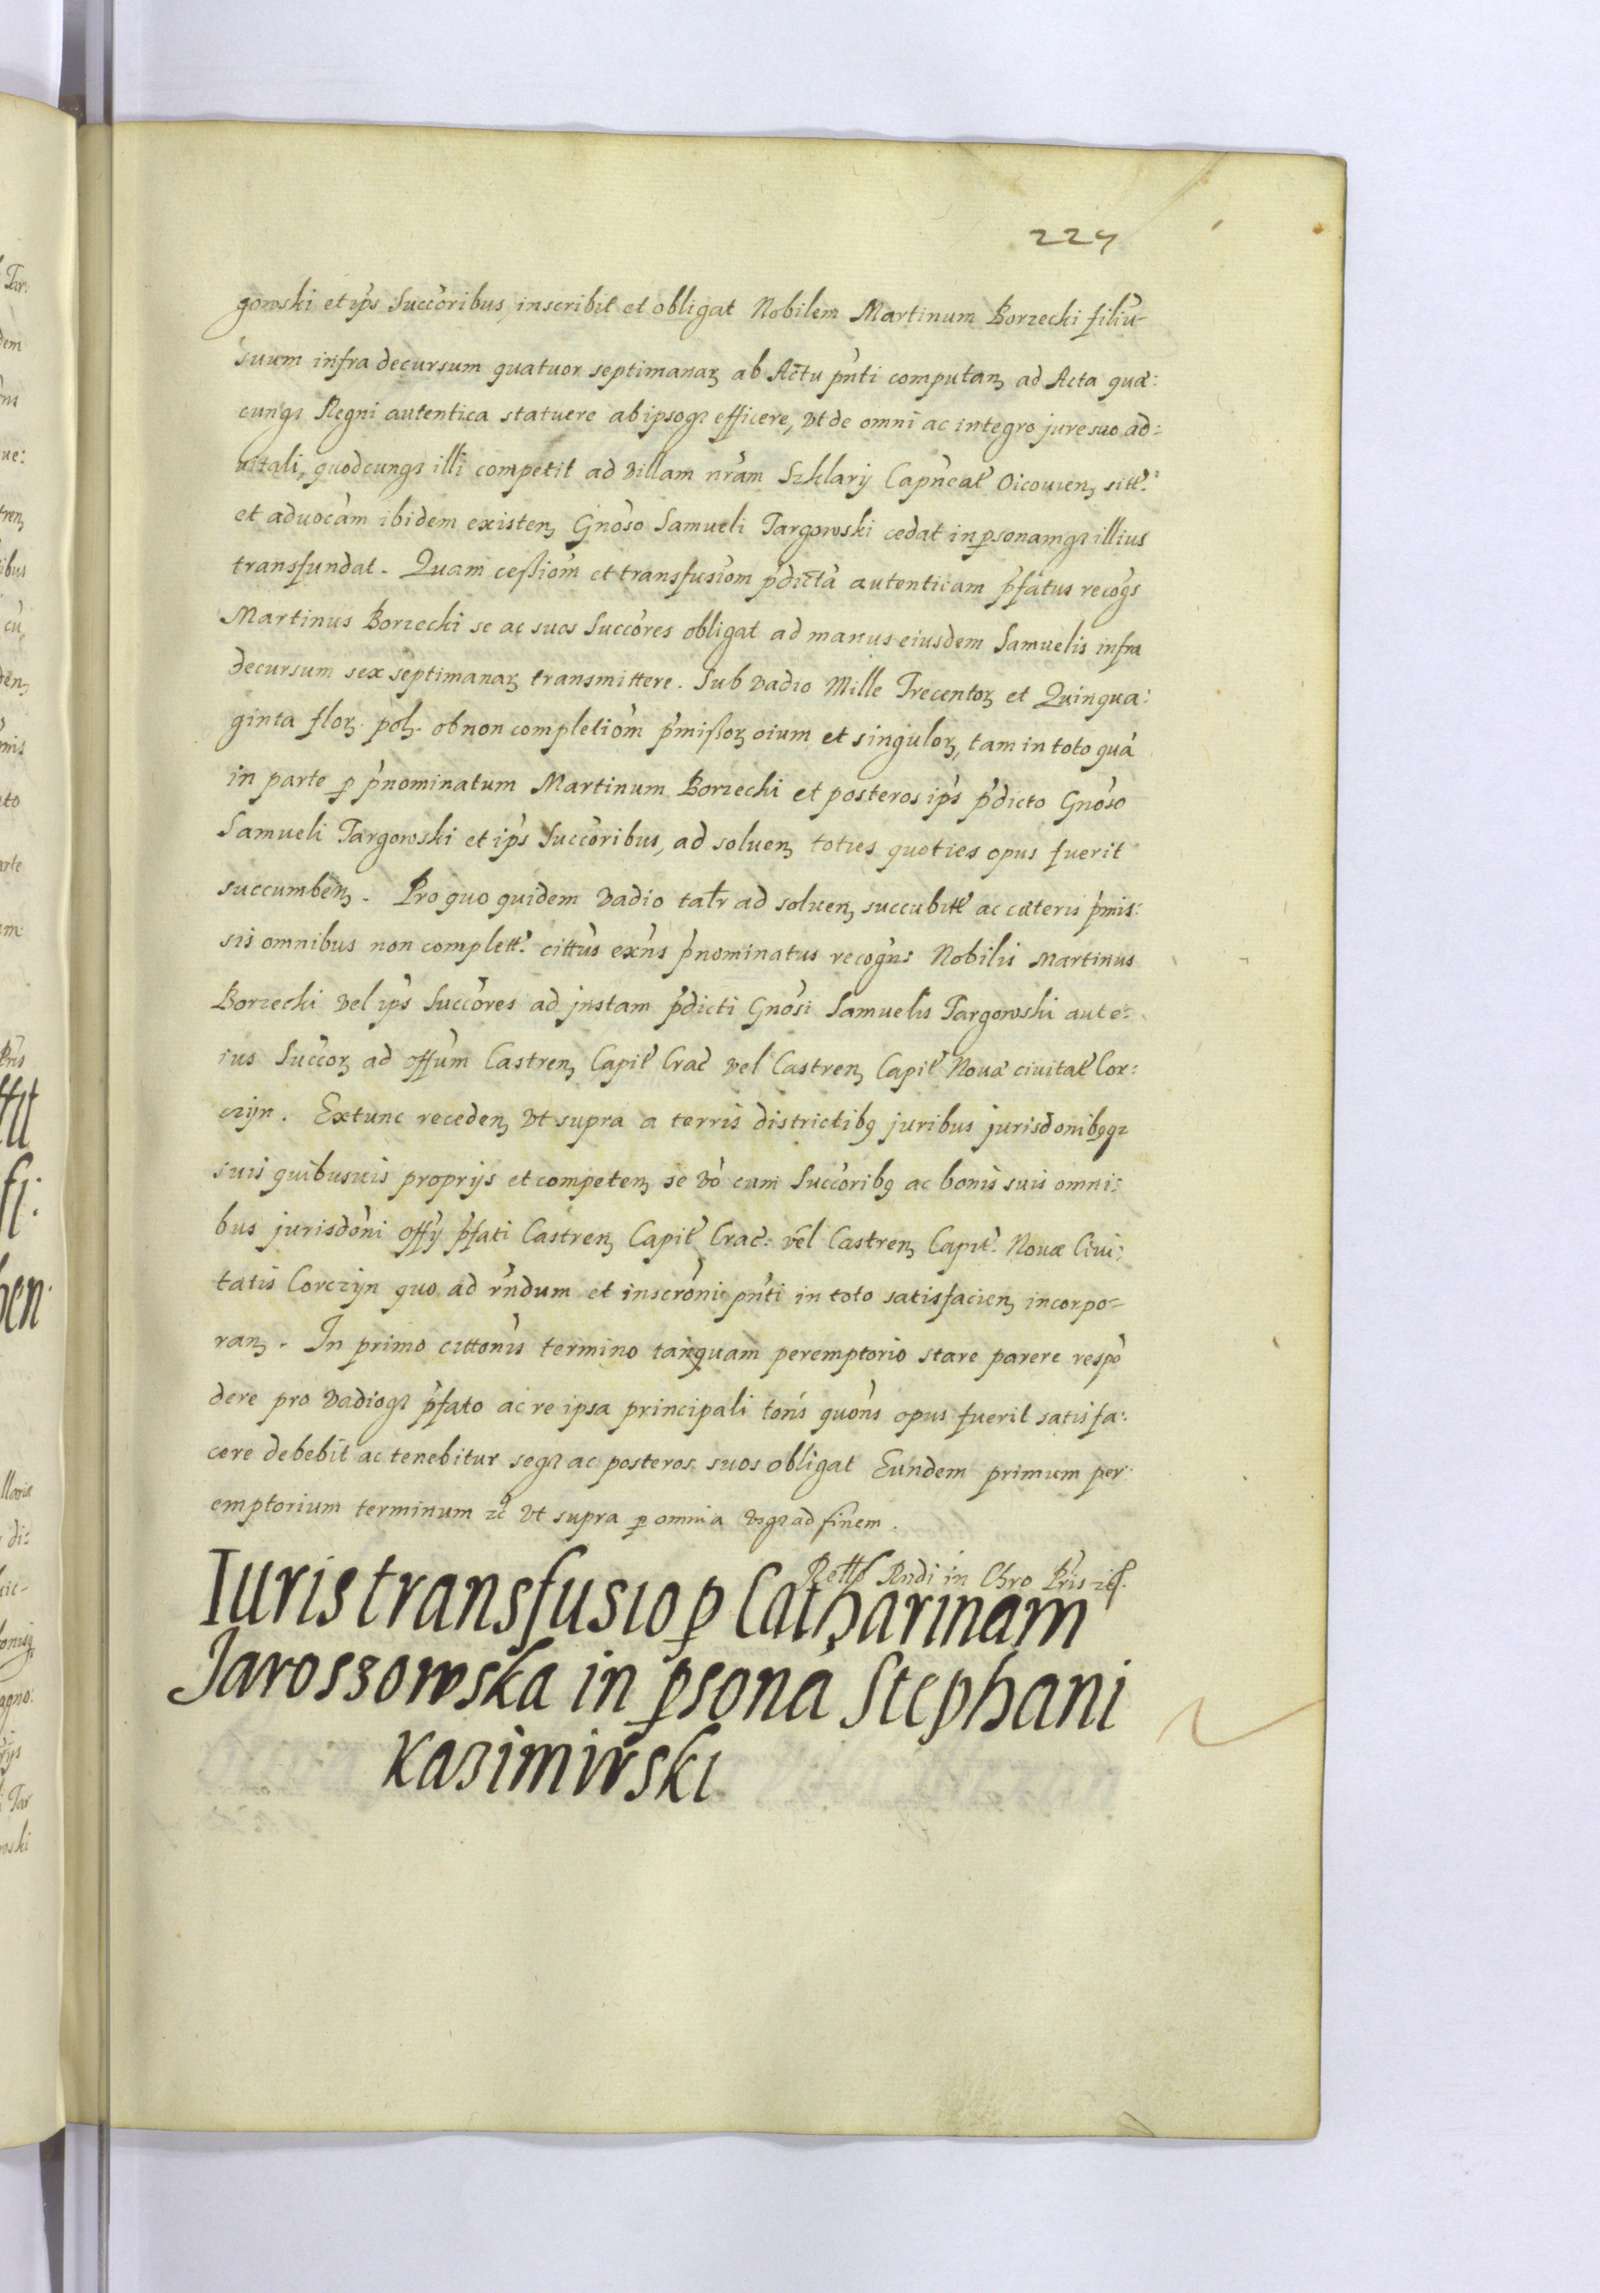 224
gowski et ip̃s Succõribus, inscribit et obligat Nobilem Martinum Borzecki filiũ
suum infra decursum quatuor septimanaꝝ ab Actu pñti computanꝫ ad Acta quæ:
cunqꝫ Regni autentica statuere ab ipsoqꝫ efficere, vt de omni ac integro jure suo ad:
vitali, quodcunqꝫ illi competit ad villam nrãm Szklary Capñeał Oicouienꝫ sitt̃:
et aduocãm ibidem existenꝫ Gnõso Samueli Targowski cedat in ꝑsonamqꝫ illius
transfundat. Quam ceßiom̃ et transfusiom̃ p̃dictã autenticam p̃fatus recogs̃
Martinus Borzecki se ac suos Succõres obligat ad manus eiusdem Samuelis infra
decursum sex septimanaꝝ transmittere. Sub vadio Mille Trecentoꝝ et Quinqua:
ginta floꝝ. polꝫ. ob non completiom̃ p̃mißoꝝ oium et singuloꝝ, tam in toto quã
in parte ꝑ p̃nominatum Martinum Borzecki et posteros ip̃s p̃dicto Gnõso
Samueli Targowski et ip̃s Succõribus, ad soluenꝫ toties quoties opus fuerit
succumbenꝫ. Pro quo quidem vadio talr̃ ad soluenꝫ succubitt̃ ac cæteris p̃mis:
sis omnibus non complett̃. cittũs exñs p̃nominatus recogñs Nobilis Martinus
Borzecki vel ip̃s Succõres ad jnstam p̃dicti Gnõsi Samuelis Targowski aut e:
ius Succoꝝ ad offũm Castrenꝫ Capit̃ Crac̃ vel Castrenꝫ Capit̃ Nouæ ciuitat̃ Cor:
czyn. Extunc recedenꝫ vt supra a terris districtibꝯ juribus jurisdonibꝯqꝫ
suis quibusuis proprijs et competenꝫ se võ cum Succõribꝯ ac bonis suis omni:
bus jurisdõni offỹ p̃fati Castrenꝫ Capit̃ Crac̃: vel Castrenꝫ Capit̃. Nouæ Ciui:
tatis Corczyn quo ad rñdum et inscrõni pñti in toto satisfacienꝫ incorpo:
ranꝫ. In primo cittonis̃ termino tanquam peremptorio stare parere respõ
dere pro vadioqꝫ p̃fato ac re ipsa principali tonś quonś opus fuerit satisfa:
cere debebit ac tenebitur seqꝫ ac posteros suos obligat Eundem primum per
emptorium terminum ꝛc̃ vt supra ꝑ omnia vsqꝫ ad finem.
Rndi in Chro Pris ꝛc̃.
Iuris transfusio ꝑ Catharinam
Jaroszowska in ꝑsonã Stephani
Kazimirski